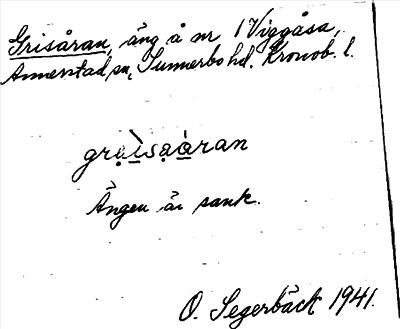 Grisåran, äng å nr 1 Viggåsa,
Annerstad sn, Sunnerbo hd. Kronob. l.
grạ̀isạàran
Ängen är sank.
O. Segerbäck 1941.